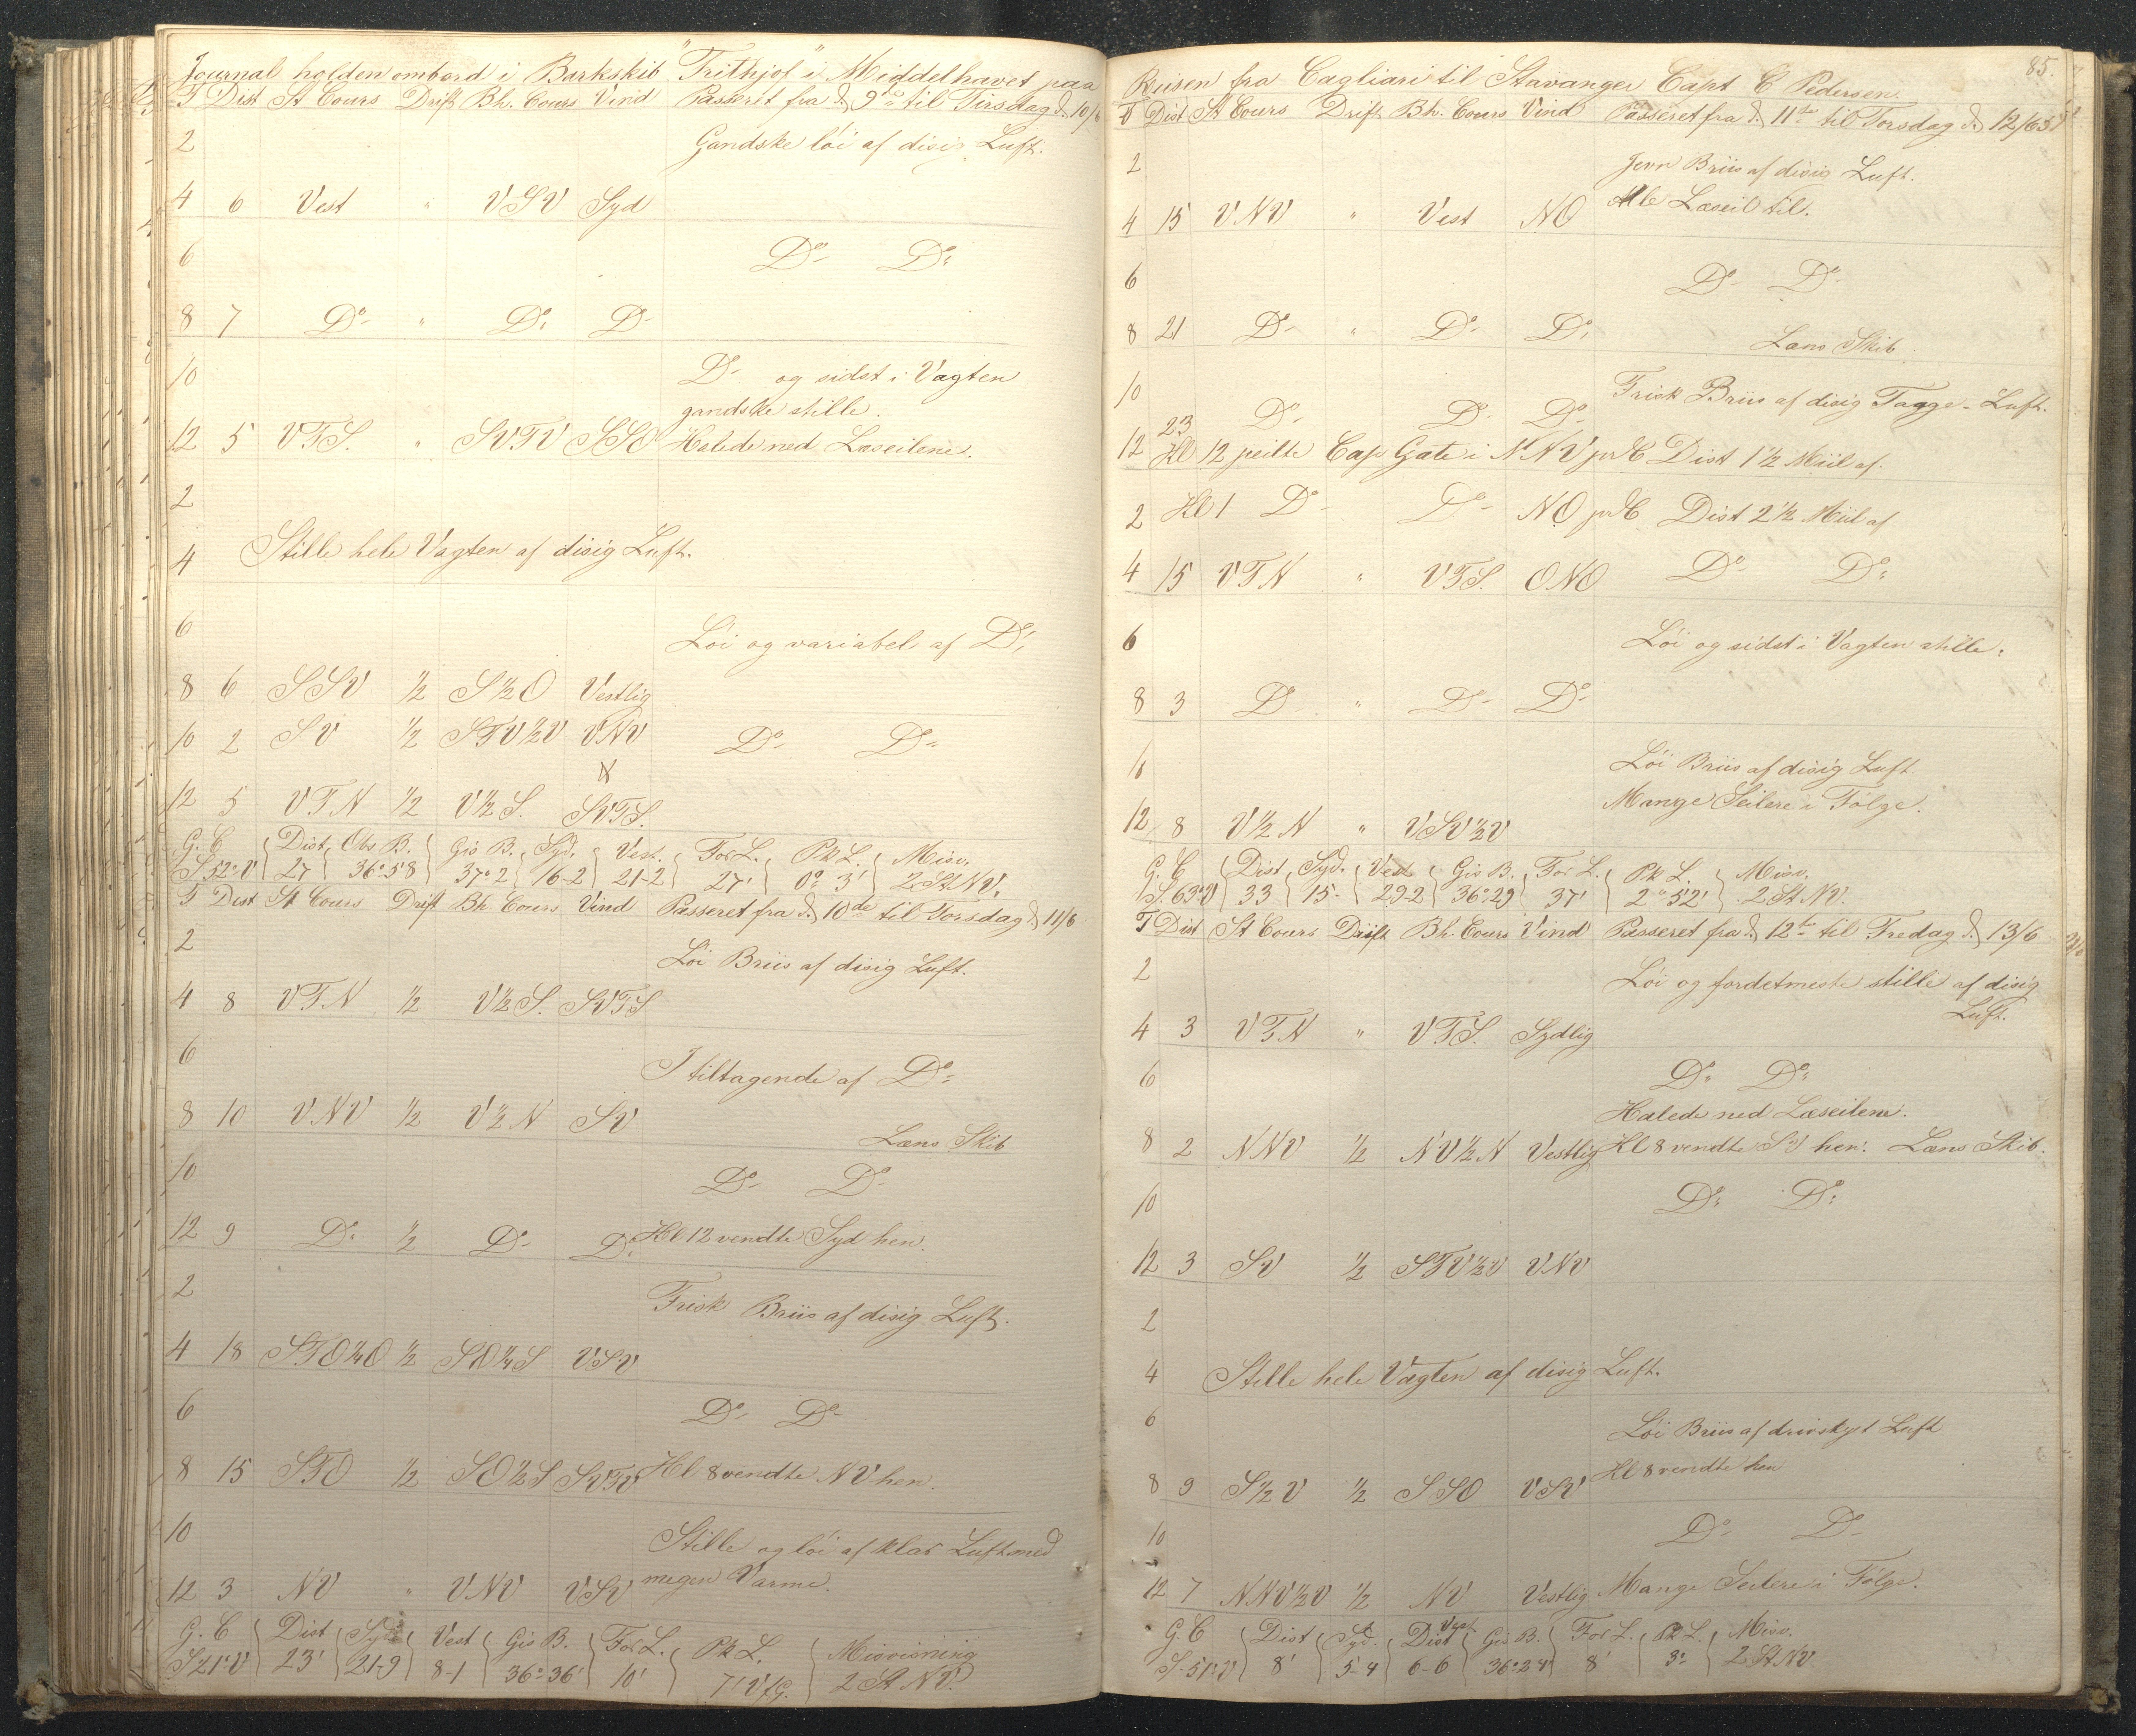 Journal holden ombord i Barkskib "Frithjof" i Middelhavet paa
T Dist St Cours Drift Bh. Cours Vind Passeret fra d. 9de til Tirsdag d. 10/6
2 Gandske löi af disig Luft.
4 6 Vest " VSV Syd
6 Do Do
8 7 Do " Do Do
10 Do og sidst i Vagten
gandske stille.
12 5 VTS. " SVTV SSO Halede ned Læseilene.
2
4 Stille hele Vagten af disig Luft.
6 Löi og variabel af Do
8 6 SSV ½ S½O Vestlig
10 2 SV ½ STV½V VNV Do Do
12 5 VTN ½ V½S. SVTS.
G. C Dist Obs B. Gis B. Syd. Vest. For L. Pk L. Misv.
S 52° V 27 36° 58 37° 2 16-2 21-2 27' 0° 3' 2 St NV.
T Dist St Cours Drift Bh Cours Vind Passeret fra d. 10de til Torsdag d. 11/6
2 Löi Briis af disig Luft.
4 8 VTN ½ V½S. SVTS
6 I tiltagende af Do
8 10 VNV ½ V½N SV
Læns Skib
10 Do Do
12 9 Do ½ Do Do Kl 12 vendte Syd hen.
2 Frisk Briis af disig Luft.
4 18 STO¼O ½ SO¼S VSV
6 Do Do
8 15 STO ½ SO½S SVTV Kl 8 vendte NV hen.
10 Stille og löi af klar Luft med
12 3 NV " VNV VSV megen Varme.
G. C Dist Syd Vest Gis B. For L. Pk L. Misvisning
S 21° V 23' 21-9 8-1 36° 36' 10' 7' V f G. 2 St NV.
85.
Reisen fra Cagliari til Stavanger Capt C Pedersen.
T Dist St Cours Drift Bh. Cours Vind Passeret fra d. 11te til Torsdag d. 12/6
2 Jevn Briis af disig Luft.
4 15 VNV " Vest NO Alle Læseil til.
6 Do Do
8 21 Do " Do Do Læns Skib
10 Frisk Briis af disig Taage-Luft.
23 Do Do Do
12 Kl 12 peilte Cap Gate i NNV pr C Dist 1½ Miil af.
2 Kl 1 Do Do NO pr C Dist 2½ Miil af
4 15 VTN " VTS. ONO Do Do
6 Löi og sidst i Vagten stille.
8 3 Do " Do Do
10 Löi Briis af disig Luft
Mange Seilere i Fölge.
12 8 V½N " VSV½V
G. C Dist Syd. Vest Gis B. For L. Pk L. Misv.
S. 63° V 33 15- 29-2 36° 29 37' 2° 52' 2 St NV.
T Dist St Cours Drift Bh. Cours Vind Passeret fra d. 12te til Fredag d. 13/6
2 Löi og fordetmeste stille af disig
Luft.
4 3 VTN " VTS. Sydlig
6 Do Do
Halede ned Læseilene.
8 2 NNV ½ NV½N Vestlig Kl 8 vendte SV hen. Læns Skib.
10 Do Do
12 3 SV ½ STV½V VNV
2
4 Stille hele Vagten af disig Luft.
6 Löi Briis af drivskyet Luft
Kl 8 vendte hen
8 9 S½V ½ SSO VSV
10 Do Do
12 7 NNV½V ½ NV Vestlig Mange Seilere i Fölge.
G. C Dist Syd. Dist Vest Gis B. For L. Pk L. Misv.
S. 51° V 8' 5-4 6-6 36° 24' 8' 3° 2 St NV